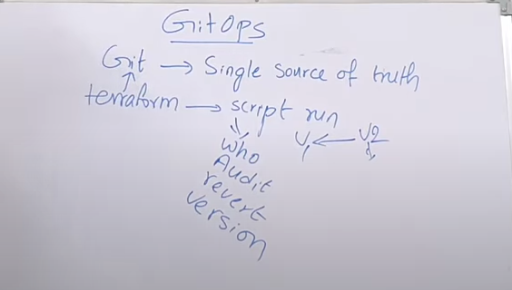 GitOps
Git → Single source of truth
↑
terraform → script run
V1 ← V2
Who
Audit
revert
version